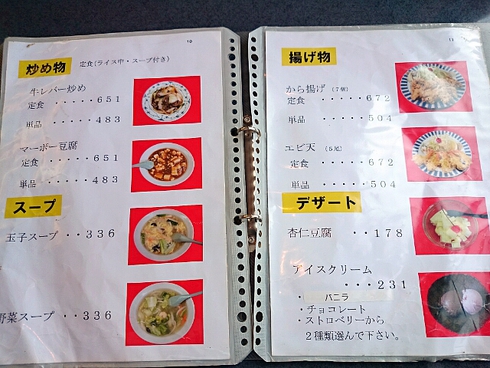 炒め物 定食(ライス中・スープ付き)
牛レバー炒め
定食・・・・・651
単品・・・・・483
マーボー豆腐
定食・・・・651
単品・・・・483
スープ
玉子スープ・・336
野菜スープ・・336
揚げ物
から揚げ(7個)
定食・・・・672
単品・・・・504
エビ天(5尾)
定食・・・・672
単品・・・・504
デザート
杏仁豆腐・・178
アイスクリーム
・・・231
・ バニラ
・チョコレート
・ストロベリーから
2種類選んで下さい。